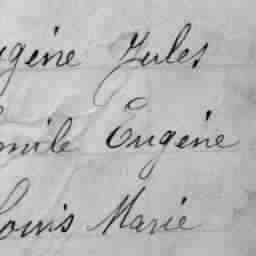 ugène Jules
Emile Eugène
Louis Marie